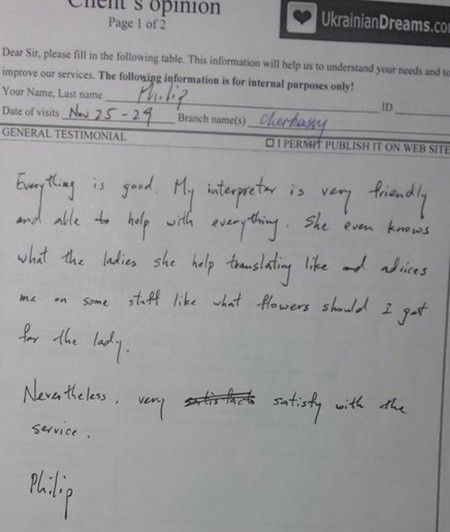 Client's opinion
Page 1 of 2
UkrainianDreams.co
Dear Sir, please fill in the following table. This information will help us to understand your needs and to
improve our services. The following information is for internal purposes only!
Your Name, Last name Philip ID
Date of visits Nov 25-29 Branch name(s) Cherkassy
GENERAL TESTIMONIAL ☐ I PERMIT PUBLISH IT ON WEB SITE
Everything is good. My interpreter is very friendly
and able to help with everything. She even knows
what the ladies she help translating like and advices
me on some stuff like what flowers should I get
for the lady.
Nevertheless, very satisfy with the
service.
Philip